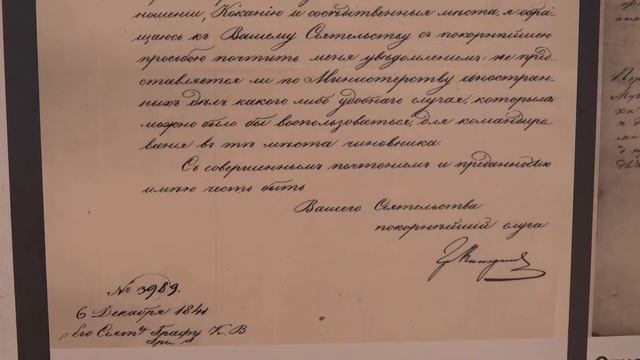 ношеніи, Коканію и сосѣдственныя мѣста, я обра-
щаюсь къ Вашему Сіятельству съ покорнѣйшею
просьбою почтить меня увѣдомленіемъ: не пред-
ставляется ли по Министерству иностран-
ныхъ дѣлъ какого либо удобнаго случая, которымъ
можно было бы воспользоваться, для командиро-
ванія въ тѣ мѣста чиновника.
Съ совершеннымъ почтеніемъ и преданностью
имѣю честь быть
Вашего Сіятельства
покорнѣйшій слуга
№ 3989.
6 Декабря 1841
Его Сіят. Графу К. В.